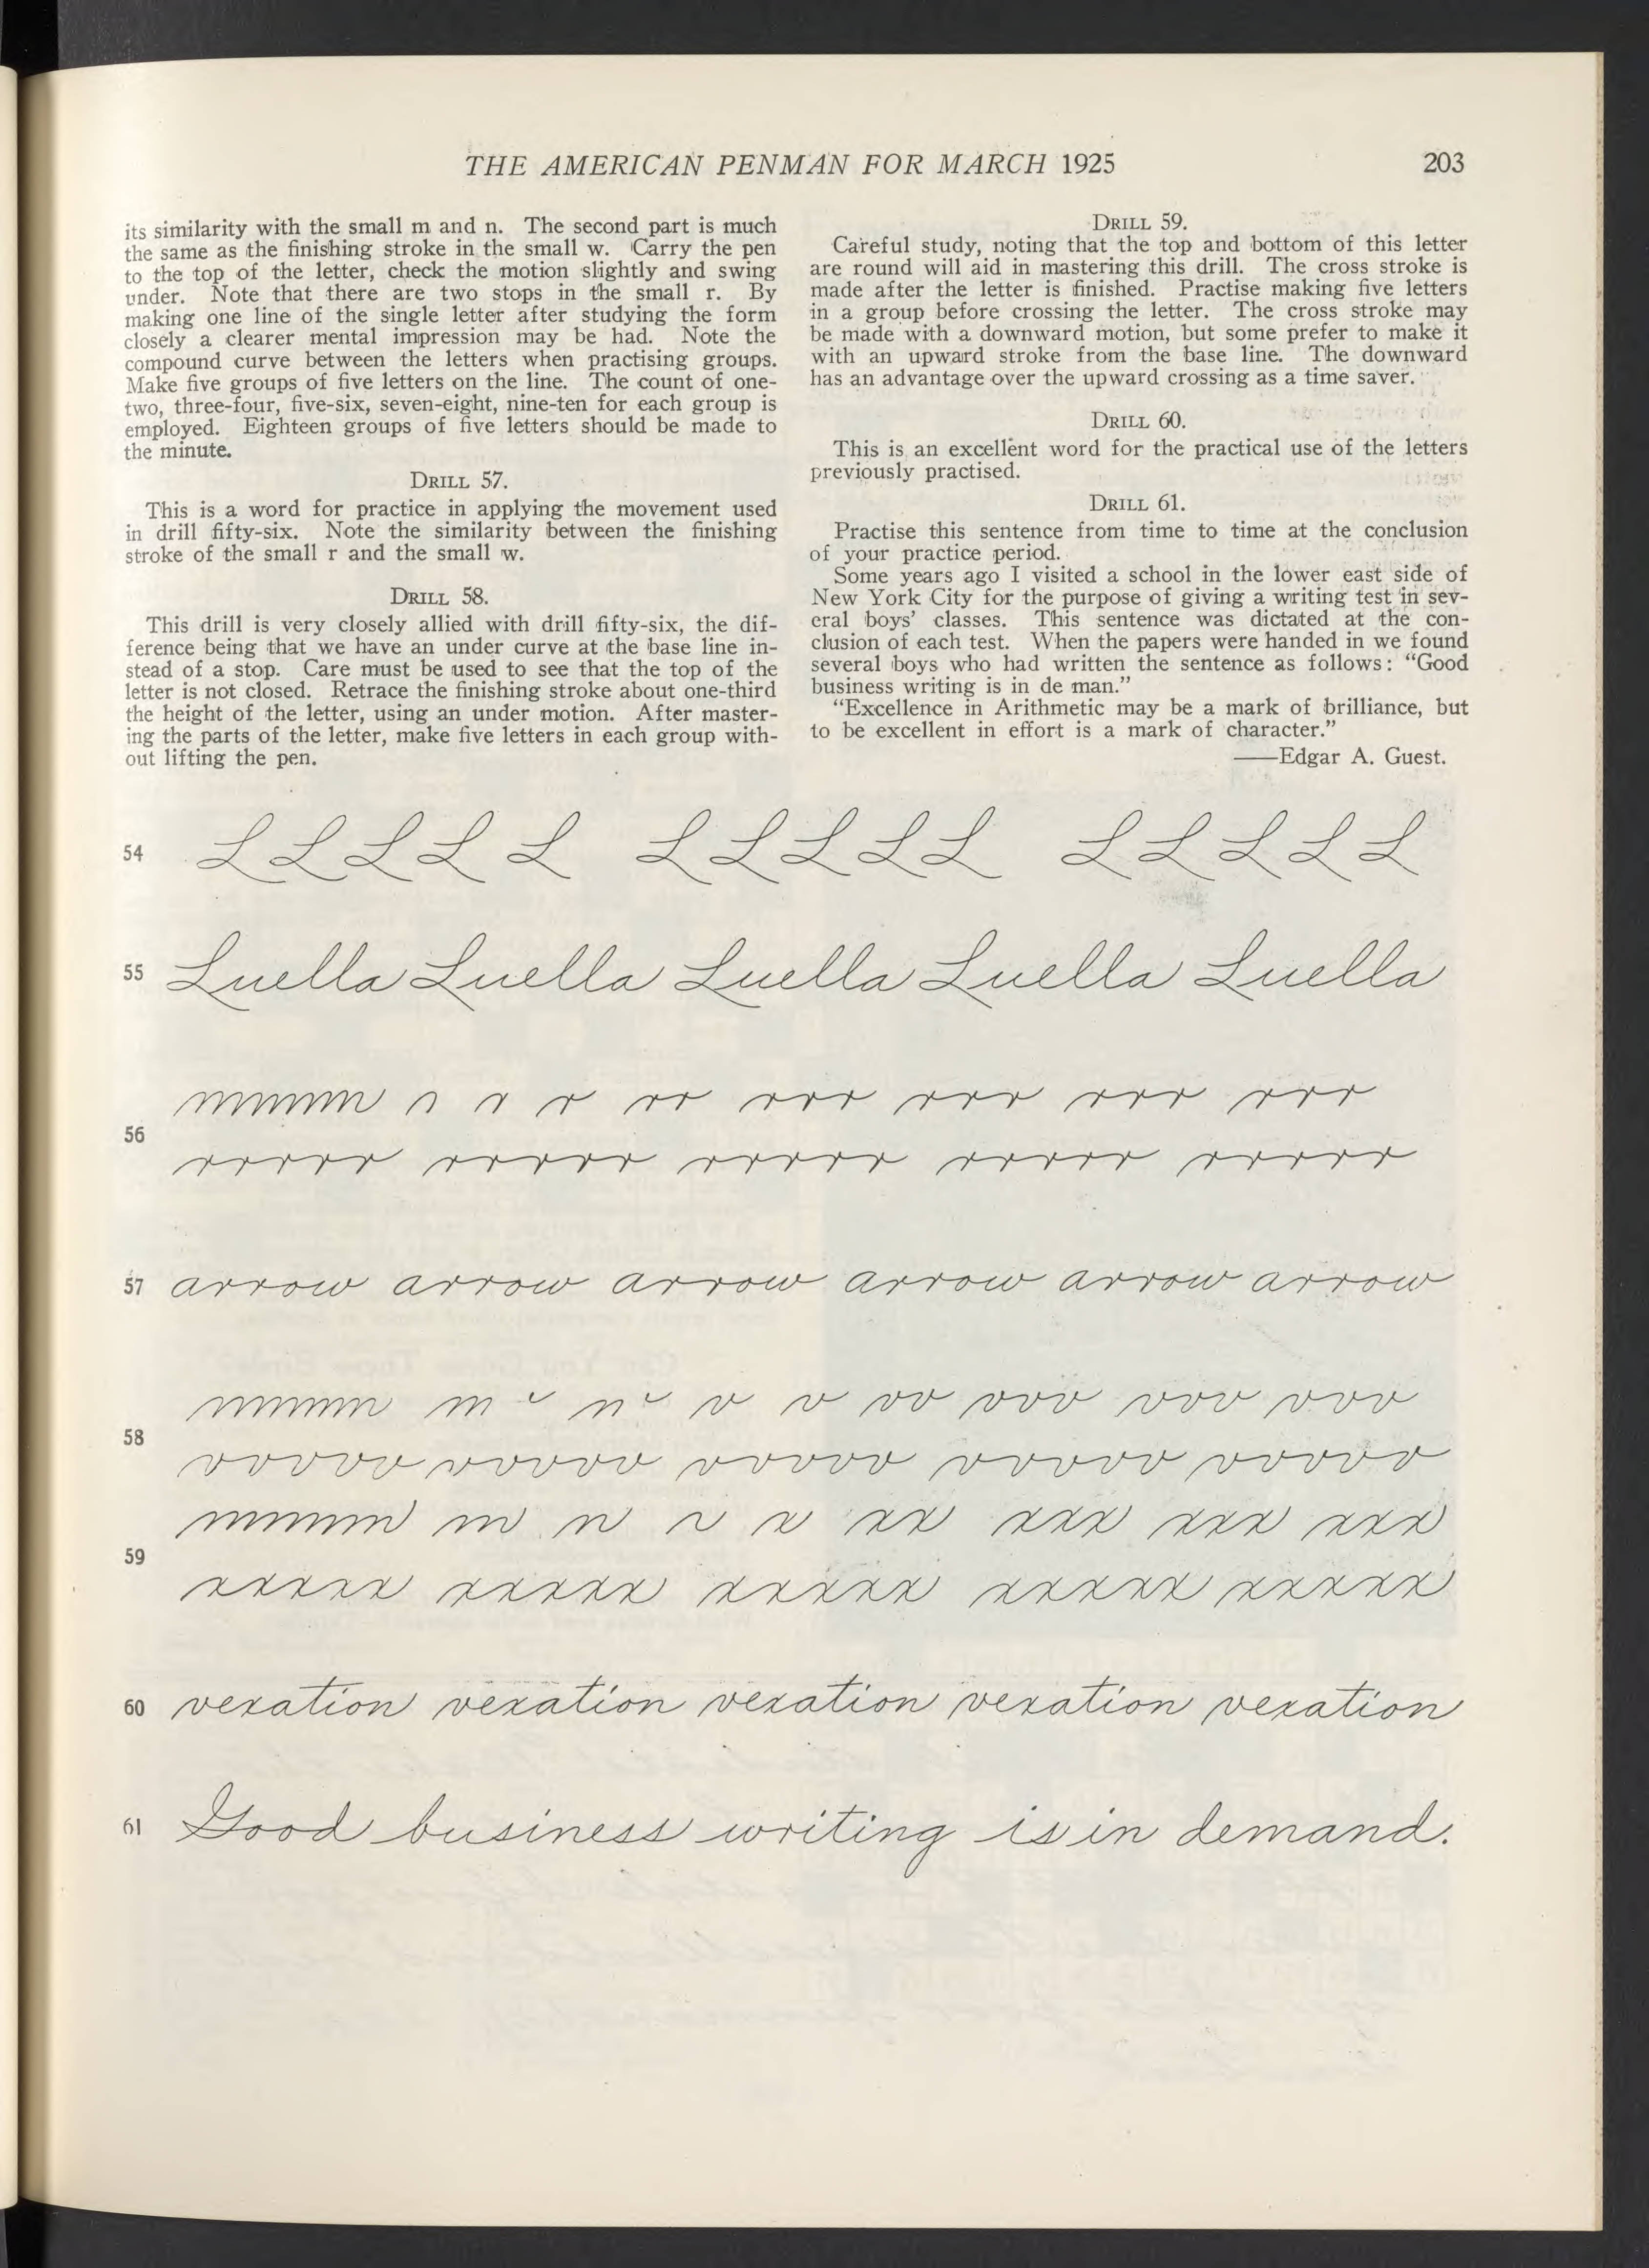 THE AMERICAN PENMAN FOR MARCH 1925
203
its similarity with the small m and n. The second part is much
the same as the finishing stroke in the small w. Carry the pen
to the top of the letter, check the motion slightly and swing
under. Note that there are two stops in the small r. By
making one line of the single letter after studying the form
closely a clearer mental impression may be had. Note the
compound curve between the letters when practising groups.
Make five groups of five letters on the line. The count of one-
two, three-four, five-six, seven-eight, nine-ten for each group is
employed. Eighteen groups of five letters should be made to
the minute.
DRILL 57.
This is a word for practice in applying the movement used
in drill fifty-six. Note the similarity between the finishing
stroke of the small r and the small w.
DRILL 58.
This drill is very closely allied with drill fifty-six, the dif-
ference being that we have an under curve at the base line in-
stead of a stop. Care must be used to see that the top of the
letter is not closed. Retrace the finishing stroke about one-third
the height of the letter, using an under motion. After master-
ing the parts of the letter, make five letters in each group with-
out lifting the pen.
DRILL 59.
Careful study, noting that the top and bottom of this letter
are round will aid in mastering this drill. The cross stroke is
made after the letter is finished. Practise making five letters
in a group before crossing the letter. The cross stroke may
be made with a downward motion, but some prefer to make it
with an upward stroke from the base line. The downward
has an advantage over the upward crossing as a time saver.
DRILL 60.
This is an excellent word for the practical use of the letters
previously practised.
DRILL 61.
Practise this sentence from time to time at the conclusion
of your practice period.
Some years ago I visited a school in the lower east side of
New York City for the purpose of giving a writing test in sev-
eral boys' classes. This sentence was dictated at the con-
clusion of each test. When the papers were handed in we found
several boys who had written the sentence as follows: "Good
business writing is in de man."
"Excellence in Arithmetic may be a mark of brilliance, but
to be excellent in effort is a mark of character."
——Edgar A. Guest.
54 L L L L L L L L L L L L L L L
55 Luella Luella Luella Luella Luella
56
mmmm r r rr rrr rrr rrr rrr
rrrrr rrrrr rrrrr rrrrr rrrrr
57 arrow arrow arrow arrow arrow arrow
58
mmmm m n v v vv vvv vvv vvv
vvvvv vvvvv vvvvv vvvvv vvvvv
59
mmmm m n x xx xxx xxx xxx
xxxxx xxxxx xxxxx xxxxx xxxxx
60 vexation vexation vexation vexation vexation
61 Good business writing is in demand.